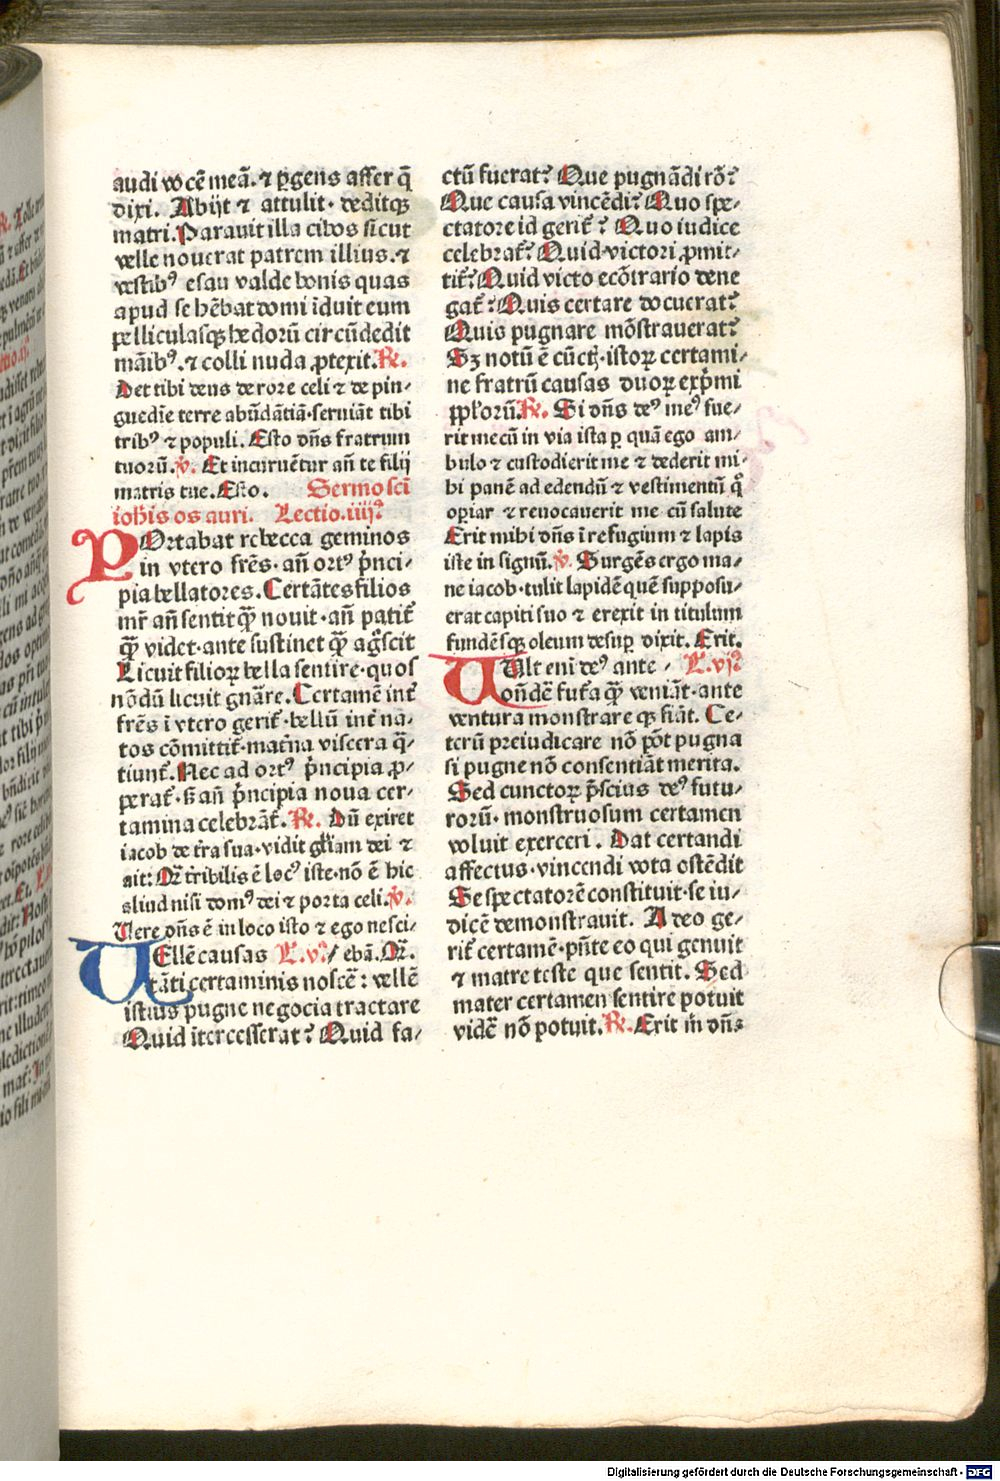 audi vocē meā. ⁊ ꝑgens affer q̄
dixi. Abijt ⁊ attulit. deditqꝫ
matri. Parauit illa cibos sicut
velle nouerat patrem illius. ⁊
vestibꝰ esau valde bonis quas
apud se hēbat domi īduit eum
pelliculasqꝫ hedorū circūdedit
māibꝰ. ⁊ colli nuda ꝓtexit. ℟.
Det tibi deus de rore celi ⁊ de pin-
guedīe terre abūdātiā. seruiāt tibi
tribꝰ ⁊ populi. Esto dn̄s fratrum
tuorū. ℣. Et incuruētur an̄ te filij
matris tue. Esto. Sermo sc̄i
ioh̄is os auri. Lectio. iiijꝰ
POrtabat rebecca geminos
in vtero fr̄es. an̄ ortꝰ p̄nci-
pia bellatores. Certātes filios
mr̄ an̄ sentit qꝫ̄ nouit. an̄ patit᷑
qꝫ̄ videt. ante sustinet qꝫ̄ aḡscit
Licuit filioꝝ bella sentire. quos
nōdū licuit gnāre. Certamē int᷑
fr̄es ī vtero gerit᷑. bellū int᷑ na-
tos cōmittit᷑. mat᷑na viscera q̄-
tiunt᷑. Nec ad ortꝰ p̄ncipia ꝓ-
perat᷑. sꝫ an̄ p̄ncipia noua cer-
tamina celebrāt᷑. ℟. Dū exiret
iacob de t᷑ra sua. vidit gl̄iam dei ⁊
ait: Qꝫ̄ t᷑ribilis ē locꝰ iste. nō ē hic
aliud nisi domꝰ dei ⁊ porta celi. ℣.
Uere dn̄s ē in loco isto ⁊ ego nesci-
UEllē causas L. vꝰ / ebā. Qꝫ̄.
tāti certaminis noscē: vellē
istius pugne negocia tractare
Quid itercesserat? Quid fa-
ctū fuerat? Que pugnādi rō?
Que causa vincēdi? Quo spe-
ctatore id gerit᷑? Quo iudice
celebrat᷑? Quid victori ꝓmit-
tit᷑? Quid victo ecōtrario dene
gat᷑? Quis certare docuerat?
Quis pugnare mōstrauerat?
Sꝫ notū ē cūctꝭ. istoꝝ certami-
ne fratrū causas duoꝝ exp̄mi
ppl̄orū. ℟. Si dn̄s deꝰ meꝰ fue-
rit mecū in via ista ꝑ quā ego am-
bulo ⁊ custodierit me ⁊ dederit mi-
bi panē ad edendū ⁊ vestimentū q̊
operiar ⁊ reuocauerit me cū salute
Erit mihi dn̄s ī refugium ⁊ lapis
iste in signū. ℣. Surgēs ergo ma-
ne iacob. tulit lapidē quē supposu-
erat capiti suo ⁊ erexit in titulum
fundēsqꝫ oleum desuꝑ dixit. Erit.
UUlt eni deꝰ ante / L. vjꝰ
on̄dē fut᷑a qꝫ̄ veniāt. ante
ventura monstrare qꝫ fiāt. Ce-
terū preiudicare nō pōt pugna
si pugne nō consentiāt merita.
Sed cunctoꝝ p̄scius deꝰ futu-
rorū. monstruosum certamen
voluit exerceri. Dat certandi
affectus. vincendi vota ostēdit
Se spectatorē constituit. se iu-
dicē demonstrauit. Adeo ge-
rit᷑ certamē. pn̄te eo qui genuit
⁊ matre teste que sentit. Sed
mater certamen sentire potuit
vidē nō potuit. ℟. Erit m̄ dn̄s
Digitalisierung gefördert durch die Deutsche Forschungsgemeinschaft - DFG